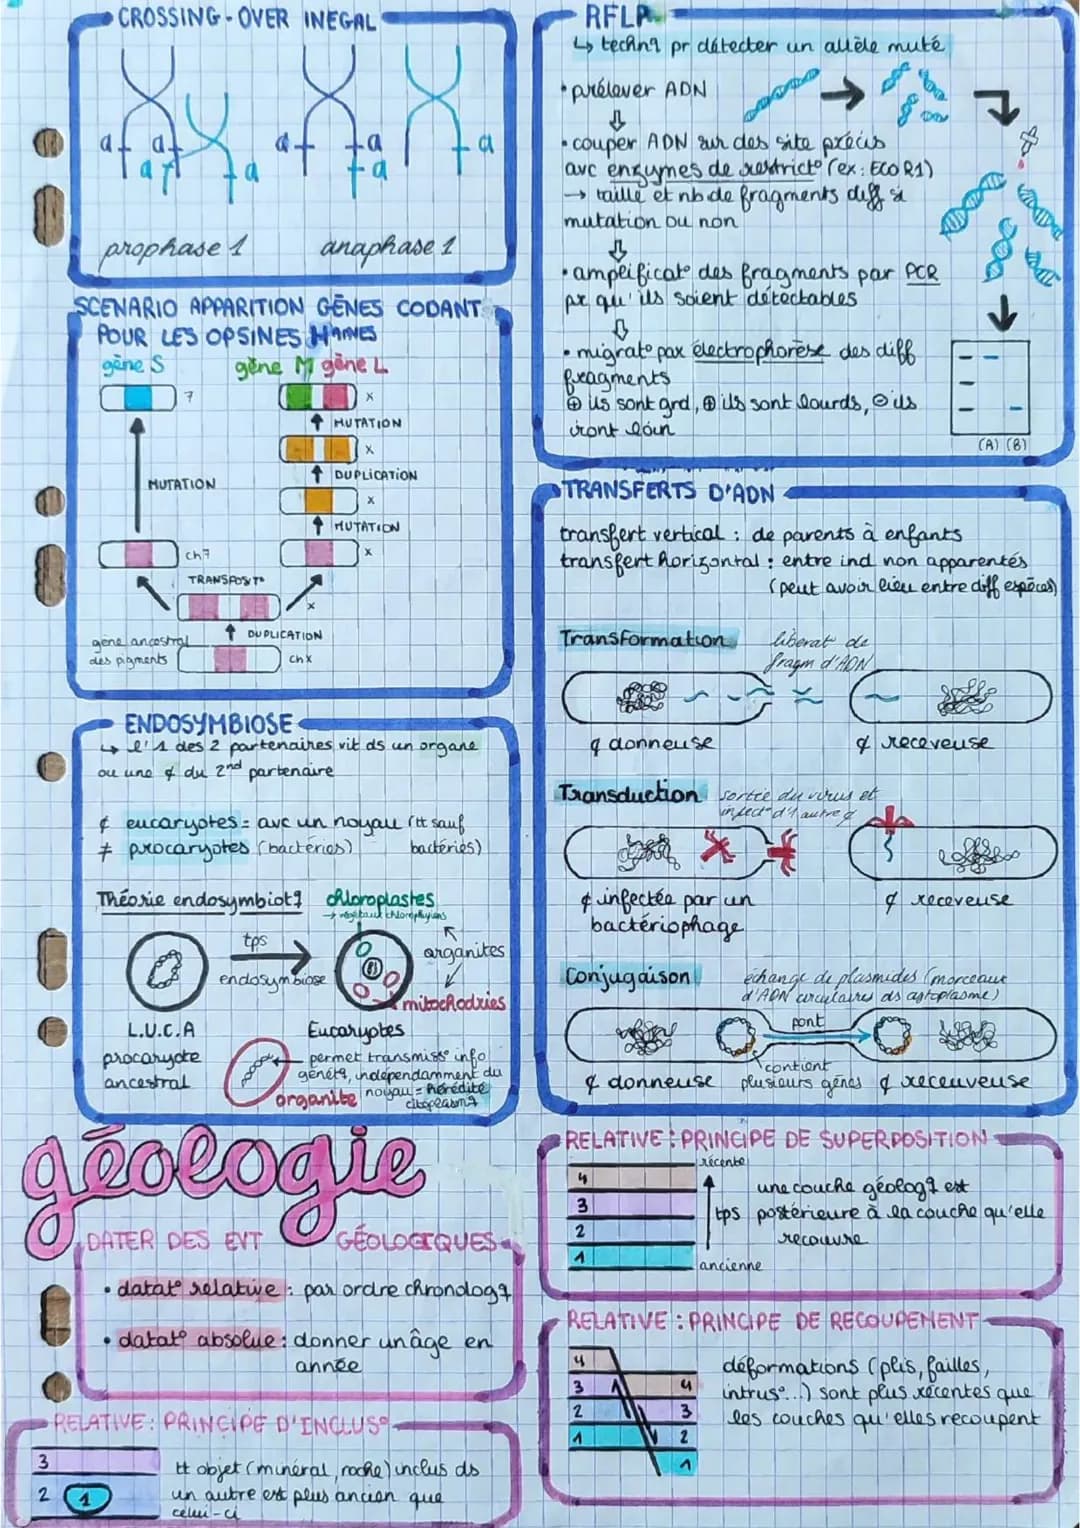 CROSSING-OVER INEGAL
a a a a
a a a a
prophase 1 anaphase 1
SCENARIO APPARITION GÈNES CODANT
POUR LES OPSINES HAINES
gène S gène M gène L
7 x
MUTATION
x
MUTATION DUPLICATION
x
MUTATION
ch7 x
TRANSPOSIT°
x
DUPLICATION
gène ancestral
des pigments chx
ENDOSYMBIOSE
↳ l'1 des 2 partenaires vit ds un organe
ou une ¢ du 2nd partenaire
¢ eucaryotes = avc un noyau (tt sauf
≠ procaryotes (bactéries) bactéries)
Théorie endosymbiotq chloroplastes
→ végétaux chlorophylliens
tps organites
endosymbiose
mitochodries
L.U.C.A Eucaryotes
procaryote
ancestral
permet transmiss° info
génétq, indépendamment du
noyau = hérédité
citoplasmq
organite
RFLP
↳ technq pr détecter un allèle muté
• prélever ADN
⇓
• couper ADN sur des site précis
avc enzymes de restrict° (ex: ECO R1)
→ taille et nb de fragments diff si
mutation ou non
⇓
• amplificat° des fragments par PCR
pr qu'ils soient détectables
⇓
• migrat° par électrophorèse des diff
fragments
⊕ ils sont grd, ⊕ ils sont lourds, ⊖ ils
iront loin
(A) (B)
TRANSFERTS D'ADN
transfert vertical : de parents à enfants
transfert horizontal : entre ind non apparentés
(peut avoir lieu entre diff espèces)
Transformation liberat° de
fragm d'ADN
¢ donneuse ¢ receveuse
Transduction sortie du virus et
infect° d'1 autre ¢
¢ infectée par un ¢ receveuse
bactériophage
Conjugaison échange de plasmides (morceaux
d'ADN circulaires ds cytoplasme)
pont
contient
¢ donneuse plusieurs gènes ¢ receuveuse
géologie
DATER DES EVT GÉOLOGIQUES
• datat° relative : par ordre chronologq
• datat° absolue : donner un âge en
année
RELATIVE : PRINCIPE D'INCLUS°
3
2 1
tt objet (minéral, roche) inclus ds
un autre est plus ancien que
celui-ci
RELATIVE : PRINCIPE DE SUPERPOSITION
récente
4
3
2
1
tps
ancienne
une couche géologq est
postérieure à la couche qu'elle
recouvre
RELATIVE : PRINCIPE DE RECOUPEMENT
4
3 4
2 3
1 2
1
déformations (plis, failles,
intrus°...) sont plus récentes que
les couches qu'elles recoupent